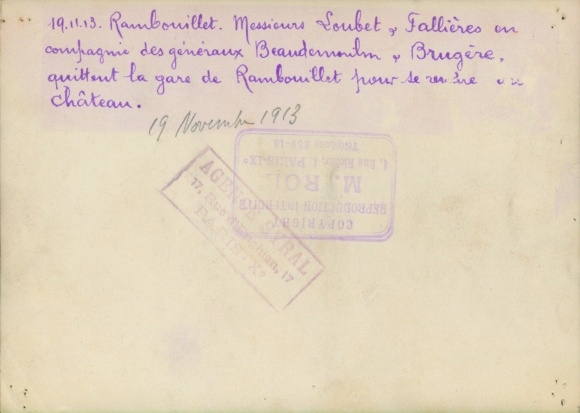 19.11.13. Rambouillet. Messieurs Loubet & Fallières en
compagnie des généraux Beaudemoulin & Brugère,
quittent la gare de Rambouillet pour se rendre au
château.
19 Novembre 1913
COPYRIGHT
REPRODUCTION INTERDITE
M. ROL
4, Rue Richer, PARIS-IX
Téléphone
AGENCE
17, Rue d'Enghien, 17
PARIS-X